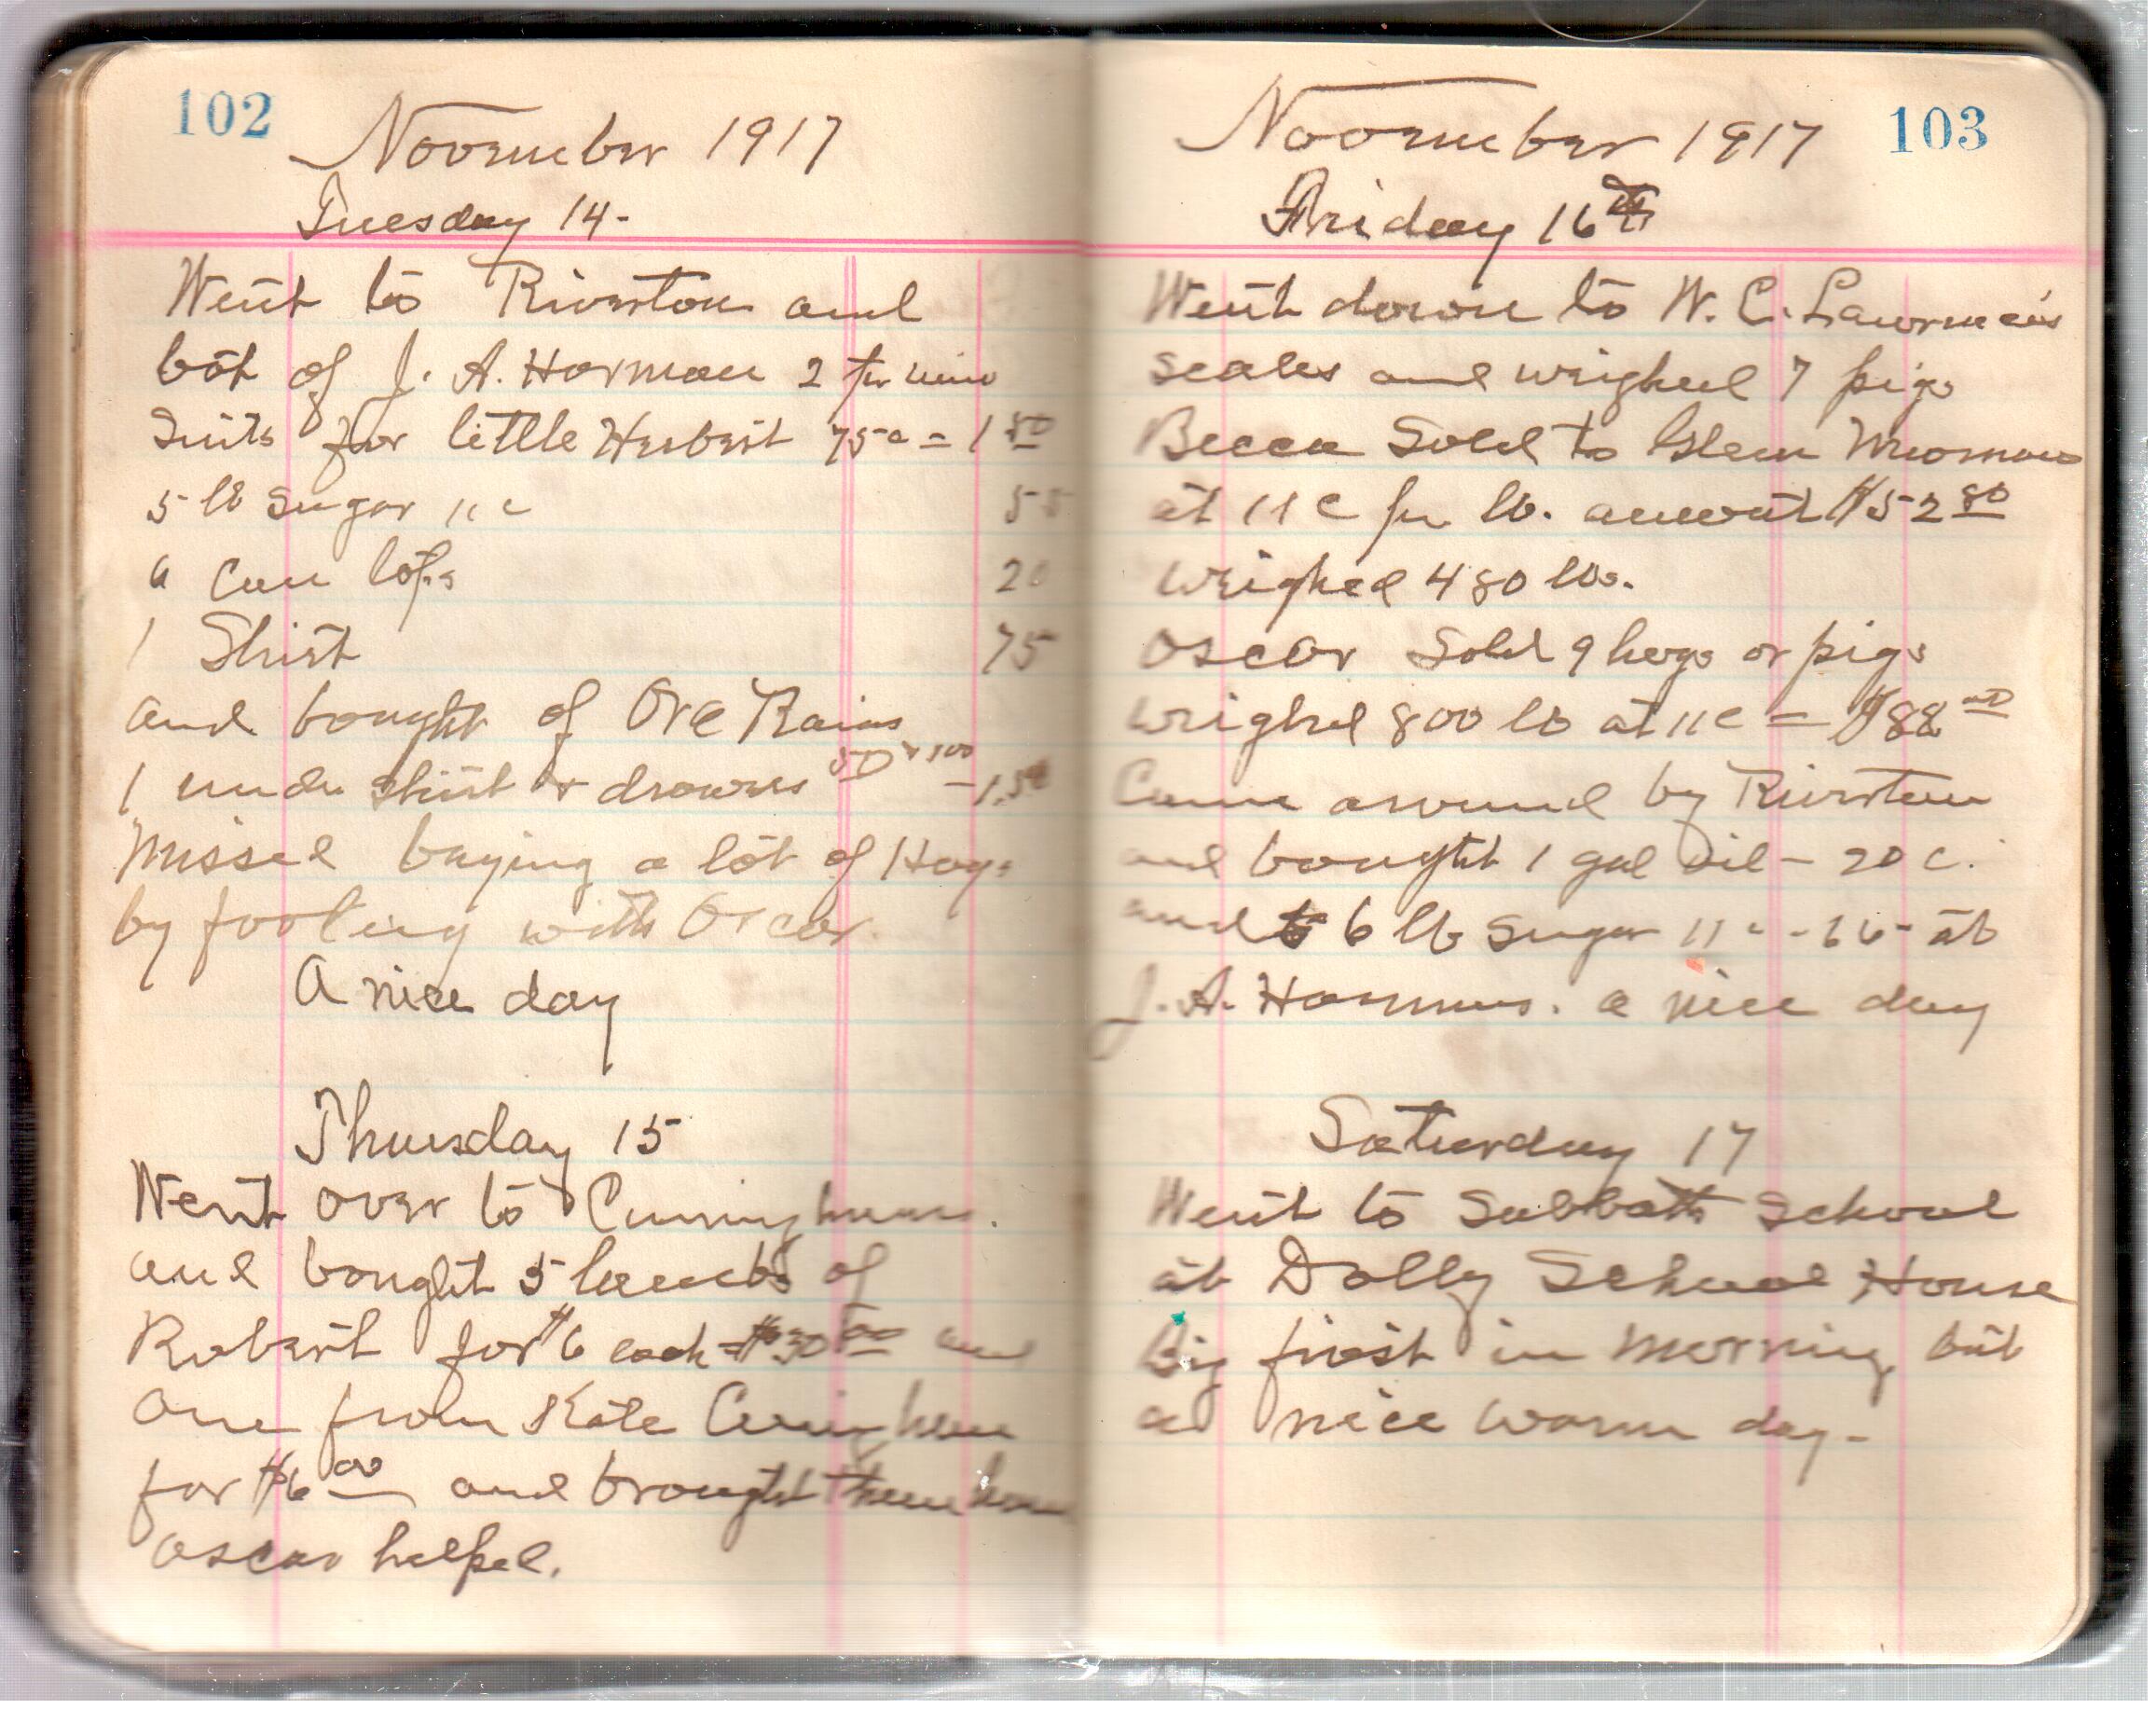 102
November 1917
Tuesday 14-
Went to Riverton and
bot of J. A. Harman 2
suits for little Herbert 75c = 1 50
5 lb Sugar 11c 55
a can 20
1 Shirt 75
and bought of Ora Rains
1 under shirt & drawers 50 & 100 - 1.50
Missed buying a lot of Hogs
by fooling with Oscar.
A nice day
Thursday 15
Went over to Cuninghams.
and bought 5 lambs of
Robert for $6 each = $30 00 and
one from Kate Cuningham
for $6 00 and brought them home
Oscar helped.
103
November 1917
Friday 16th
Went down to W. C.
scales and weighed 7 pigs
Becca Sold to Glen
at 11c per lb. amount $52 80
weighed 480 lbs.
Oscar Sold 9 hogs or pigs
weighed 800 lb at 11c = $88 00
Came around by Riverton
and bought 1 gal Oil - 20 c.
and 6 lb Sugar 11c - 66 - at
J. A. Harmans. a nice day
Saturday 17
Went to Sabbath School
at Dolly School House
Big frost in Morning but
a nice warm day-